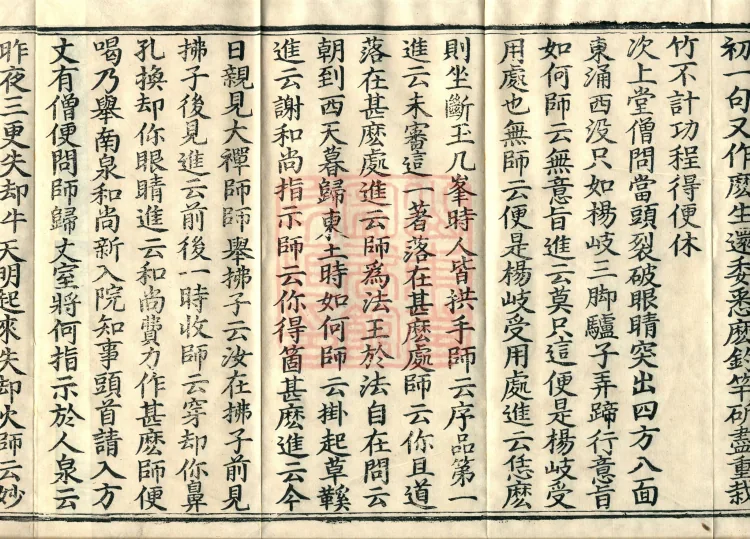 初一句又作麽生還委悉麽釣竿斫盡重栽
竹不計功程得便休
次上堂僧問當頭裂破眼睛突出四方八面
東涌西没只如楊岐三脚驢子弄蹄行意旨
如何師云無意旨進云莫只這便是楊岐受
用處也無師云便是楊岐受用處進云恁麽
則坐斷玉几峯時人皆拱手師云序品第一
進云未審這一著落在甚麽處師云你且道
落在甚麽處進云師爲法王於法自在問云
朝到西天暮歸東土時如何師云掛起草鞵
進云謝和尚指示師云你得箇甚麽進云今
日親見大禪師師舉拂子云汝在拂子前見
拂子後見進云前後一時收師云穿却你鼻
孔換却你眼睛進云和尚費力作甚麽師便
喝乃舉南泉和尚新入院知事頭首請入方
丈有僧便問師歸丈室將何指示於人泉云
昨夜三更失却牛天明起來失却火師云妙